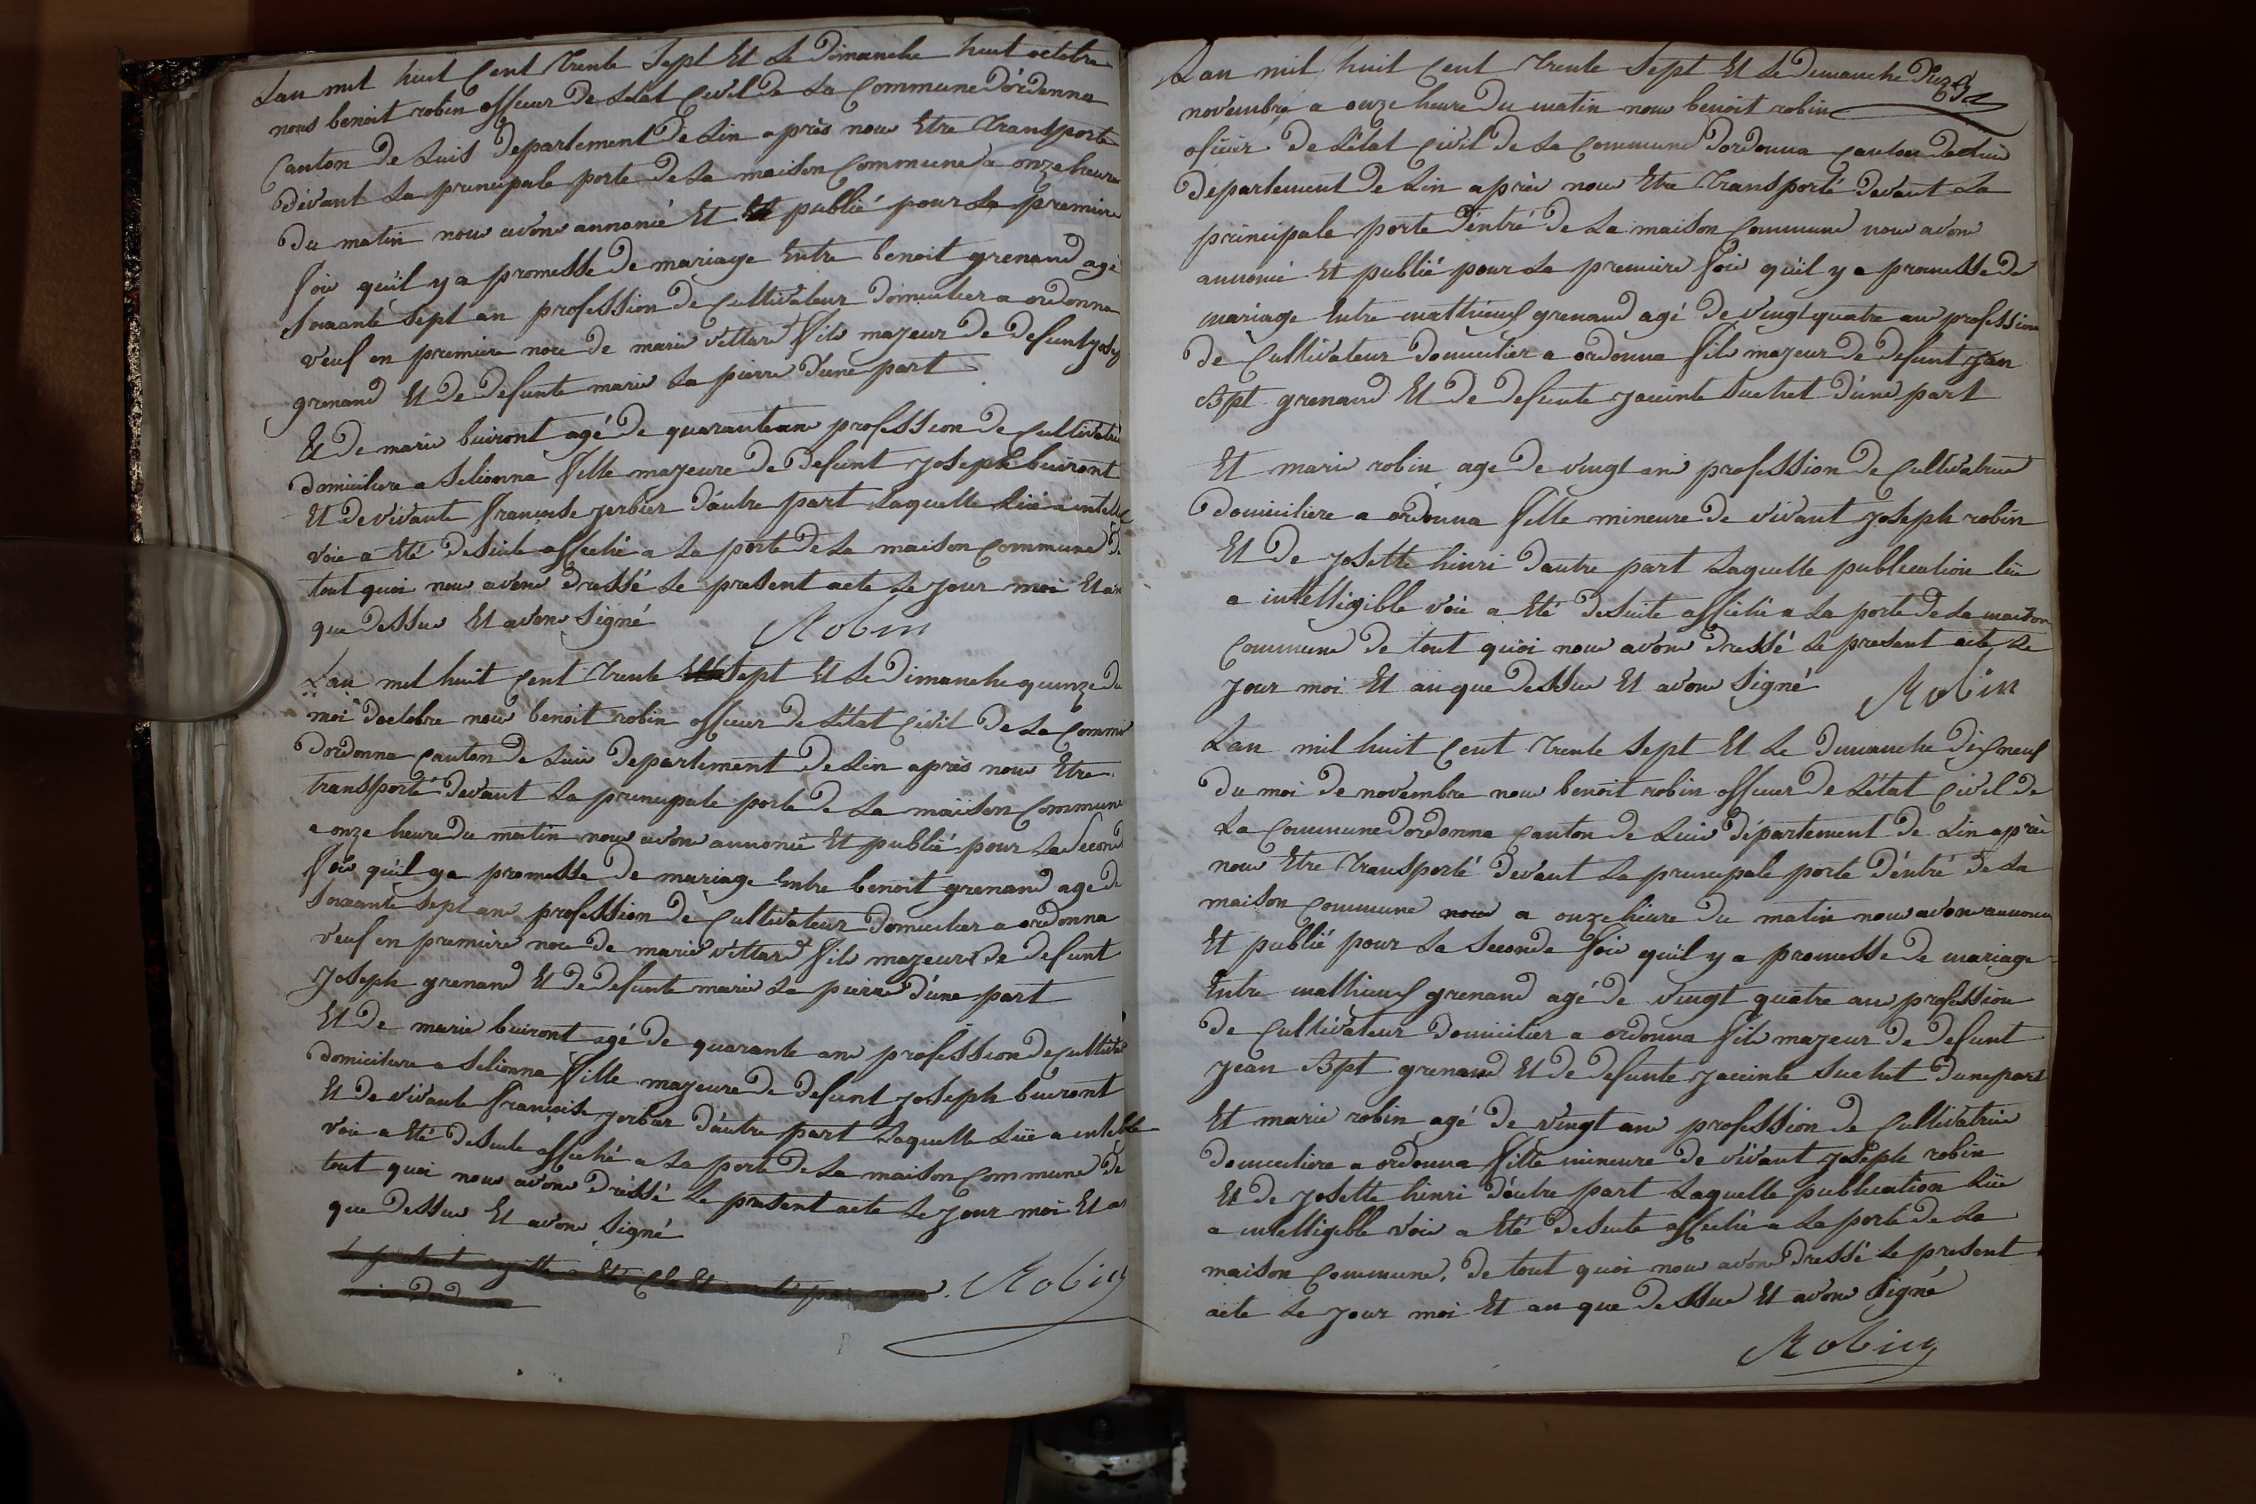 Lan mil huit Cent Trente Sept Et Le Dimanche huit octobre
nous benoit robin officier De Letat Civil De La Commune D'ordonna
Canton De Luis Departement De Lin après nour Etre Transporté
Dévant La principale porte De La maison Commune a onze heure
Du matin nour avons annoncé Et publié pour La premiere
foie quil y a promesse De mariage Entre benoit grenand agé
Soixante Sept an profession De Cultivateur Domicilier a ordonna
veuf en premiere noce de marie vittard fils majeur De Defunt josep
grenand Et De Defunte marie La pierre D'une part
Et De marie buiront agé De quarante ans profession De Cultivatri
Domiciliere a Selionna fille majeure De Defunt joseph buiront
Et De vivante françoise jerbier D'autre part Laquelle Lüe a intel
voie a Eté De Suite affiché a La porte De La maison Commune De
tout quoi nour avons Dressé Le present acte Le jour moi Et an
que Dessus Et avons Signé
Robin
Lan mil huit Cent Trente Sept Et Le Dimanche quinze Du
moi Doctobre nour benoit robin officier De Létat Civil De La Commu
Dordonna Canton De Luis Departement De Lin après nour Etre
transporté Dévant La principale porte De La maison Commune
a onze heure Du matin nour avons annoncé Et publié pour La Second
foie quil ya promesse De mariage Entre benoit grenand age De
Soixante Sept ans profession De Cultivateur Domicilier a ordonna
veuf en premiere noce De marie vittard fils majeur De Defunt
joseph grenand Et De Defunte marie La pierre D'une part
Et De marie buiront agé De quarante ans profession De Cultivat
Domiciliere a Selionna fille majeure De Defunt joseph buiront
Et De vivante françoise jerbier D'autre part Laquelle Lüe a
voie a Eté De Suite affiché a La porte De La maison Commune De
tout quoi nour avons Dressé Le present acte Le jour moi Et an
que Dessus Et avons Signé
Robin
Lan mil huit Cent Trente Sept Et Le Dimanche
novembre a onze heure Du matin nour benoit robin
oficier De Létat Civil De La Commune Dordonna Canton
Departement De Lin après nour Etre Transporté Devant La
principale porte D'éntré De La maison Commune nour avons
annoncé Et publié pour La premiere foie quil y a promesse De
mariage Entre mathieu grenand agé De vingt quatre ans profession
De Cultivateur Domicilier a ordonna fils majeur De Defunt jean
Bpt grenand Et De Defunte jacinte Suchet D'une part
Et marie robin age De vingt ans profession De Cultivatrice
Domiciliere a ordonna fille mineure De vivant joseph robin
Et De josette hinri Dautre part Laquelle publication Lüe
a intelligible voie a Eté De Suite affiché a La porte De La maison
Commune De tout quoi nour avons Dressé Le present acte Le
jour moi Et an que Dessus Et avons Signé
Robin
Lan mil huit Cent Trente Sept Et Le Dimanche Dix neuf
Du moi De novembre nour benoit robin officier De Létat Civil De
La Commune Dordonna Canton De Luis Département De Lin après
nour Etre Transporté Devant La principale porte D'éntré De La
maison Commune a onze heure Du matin nour avons annoncé
Et publié pour La Seconde foie quil y a promesse De mariage
Entre mathieu grenand agé De vingt quatre ans profession
De Cultivateur Domicilier a ordonna fils majeur De Defunt
jean Bpt grenand Et De Defunte jacinte Suchet D'une part
Et marie robin agé De vingt ans profession De Cultivatrice
Domiciliere a ordonna fille mineure De vivant joseph robin
Et De josette hinri D'autre part Laquelle publication Lüe
a intelligible voie a Eté De Suite affiché a La porte De La
maison Commune. De tout quoi nour avons Dressé Le present
acte Le jour moi Et an que Dessus Et avons Signé
Robin